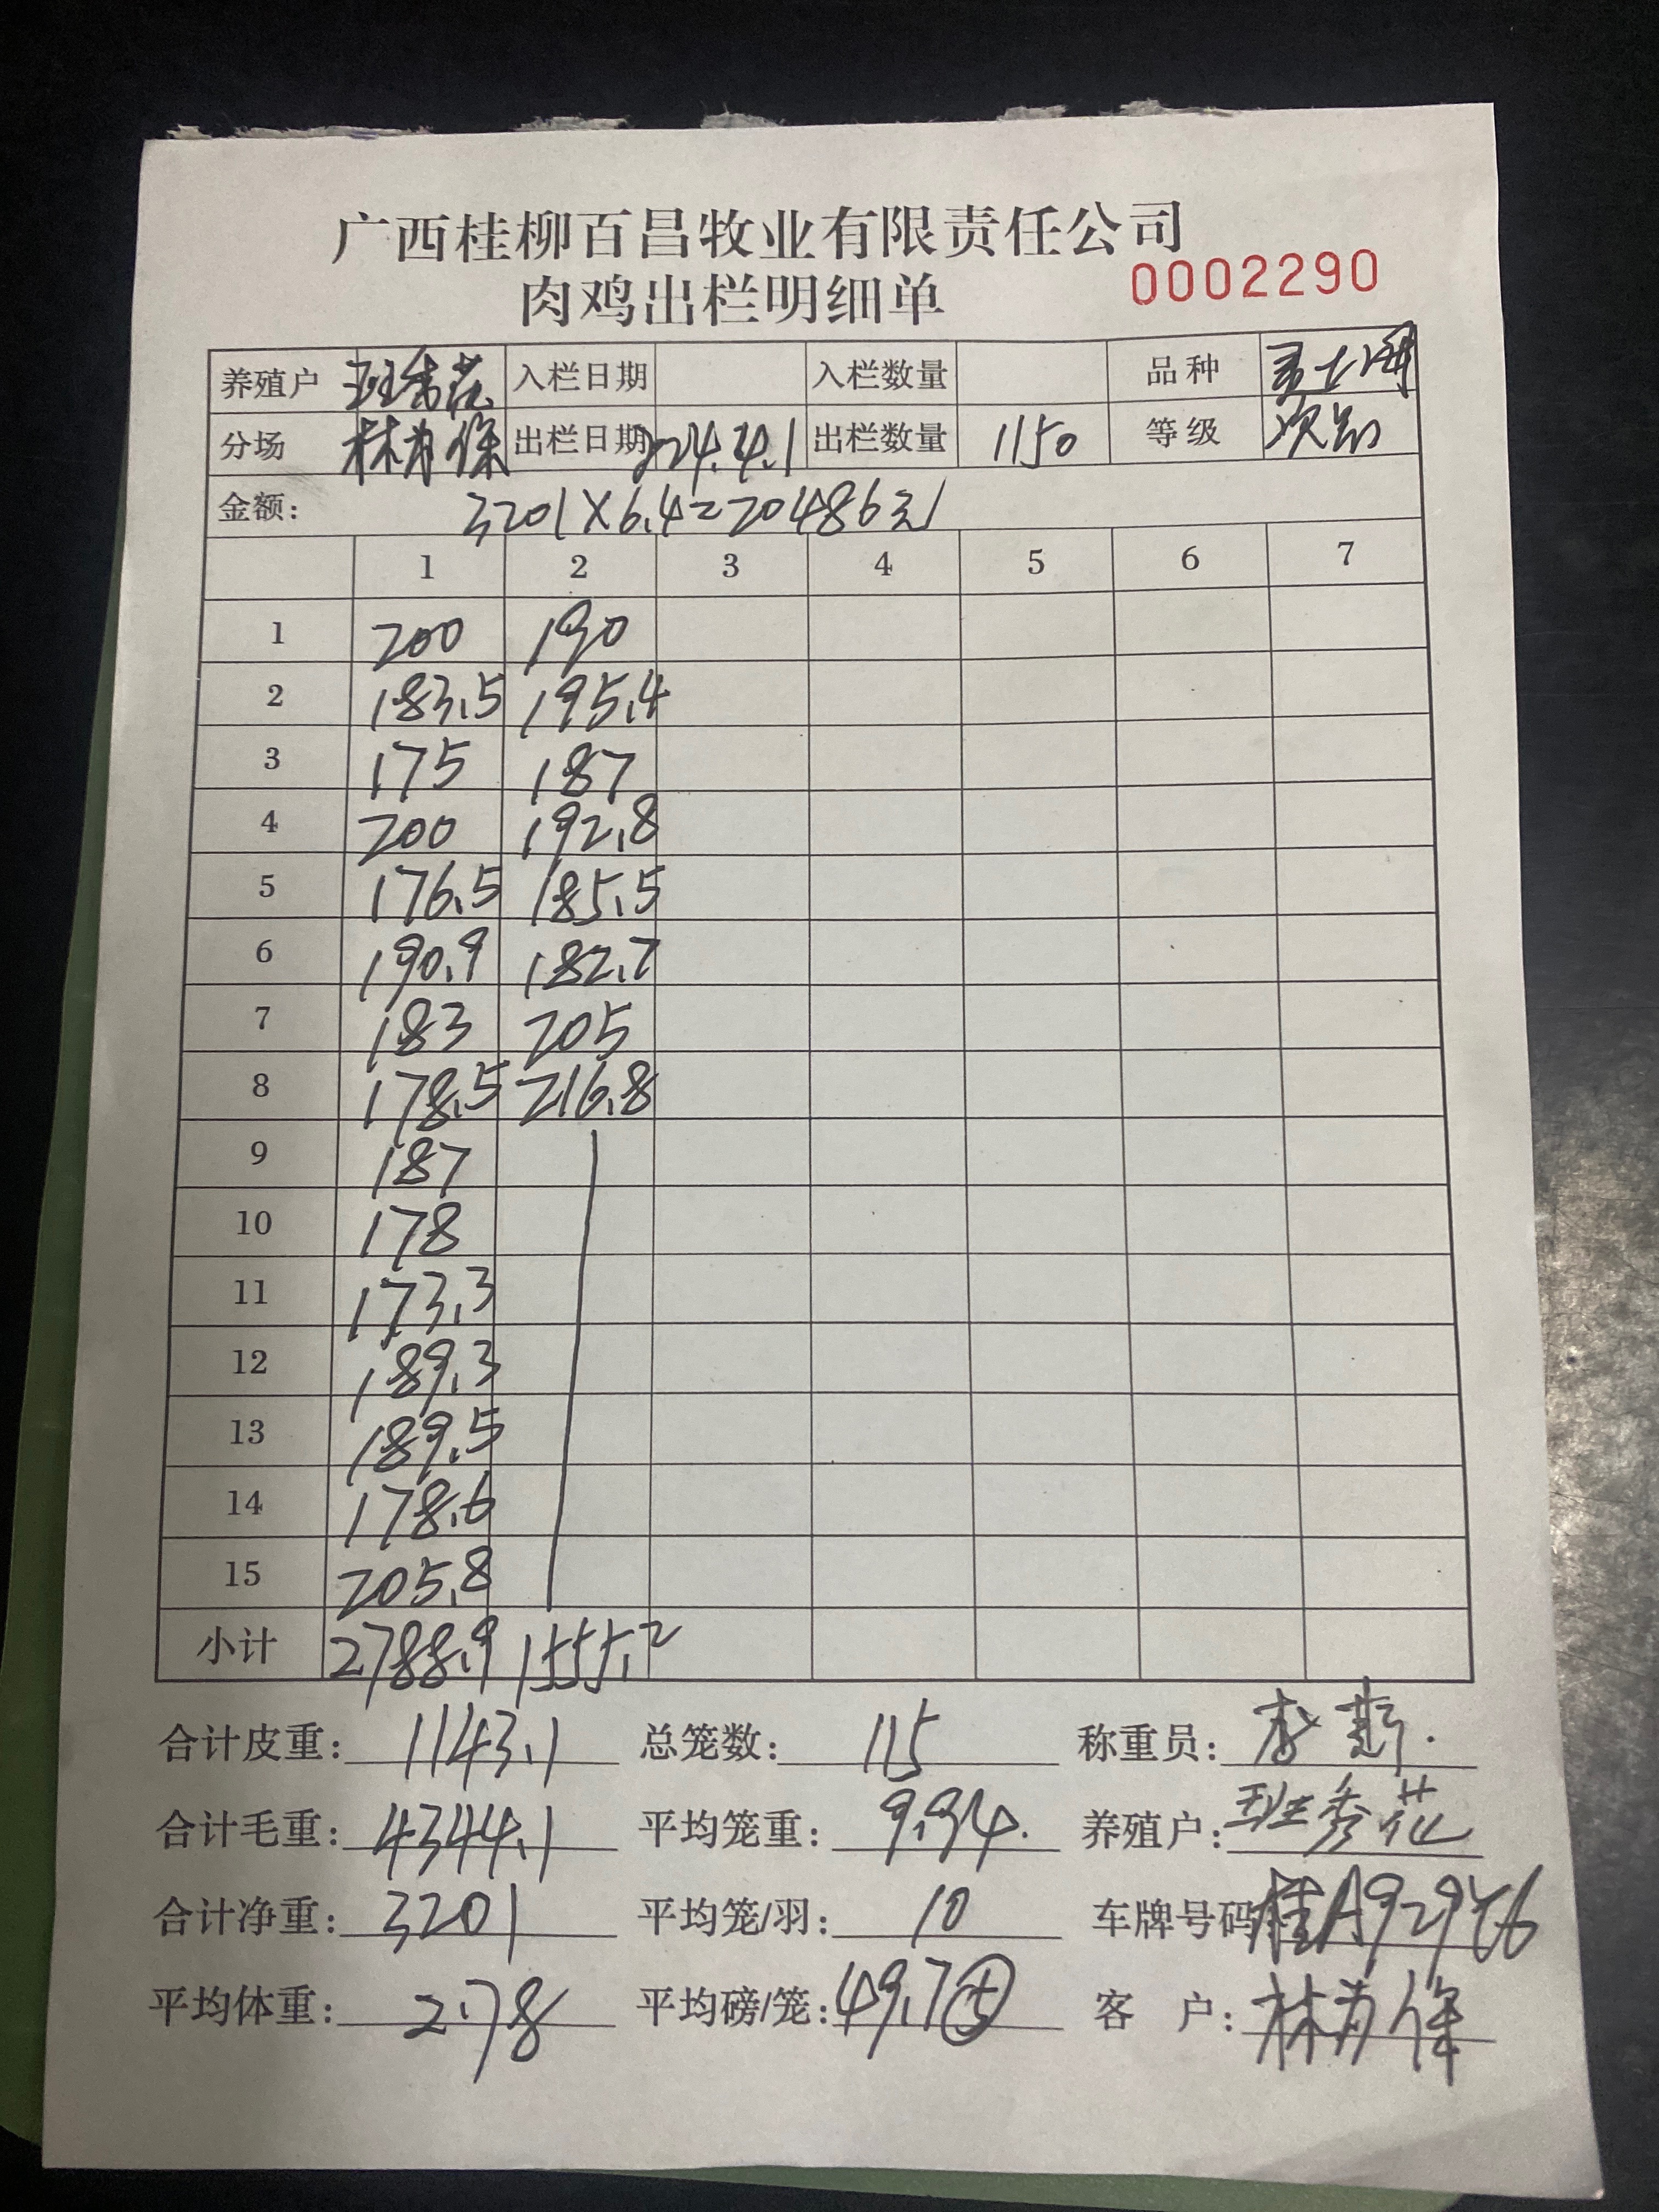 广西桂柳百昌牧业有限责任公司
肉鸡出栏明细单 0002290
养殖户 班秀花 入栏日期 入栏数量 品种
分场 林为保 出栏日期 2024.4.1 出栏数量 1150 等级 次品
金额: 3201×6.4=20486元
1 2 3 4 5 6 7
1 200 190
2 183.5 195.4
3 175 187
4 200 192.8
5 176.5 185.5
6 190.9 182.7
7 183 205
8 178.5 216.8
9 187
10 178
11 173.3
12 189.3
13 189.5
14 178.6
15 205.8
小计 2788.9 1555.2
合计皮重: 1143.1 总笼数: 115 称重员: 李
合计毛重: 4344.1 平均笼重: 9.94. 养殖户: 班秀花
合计净重: 3201 平均笼/羽: 10 车牌号码
平均体重: 2.78 平均磅/笼: 49.7⑤ 客户: 林为保